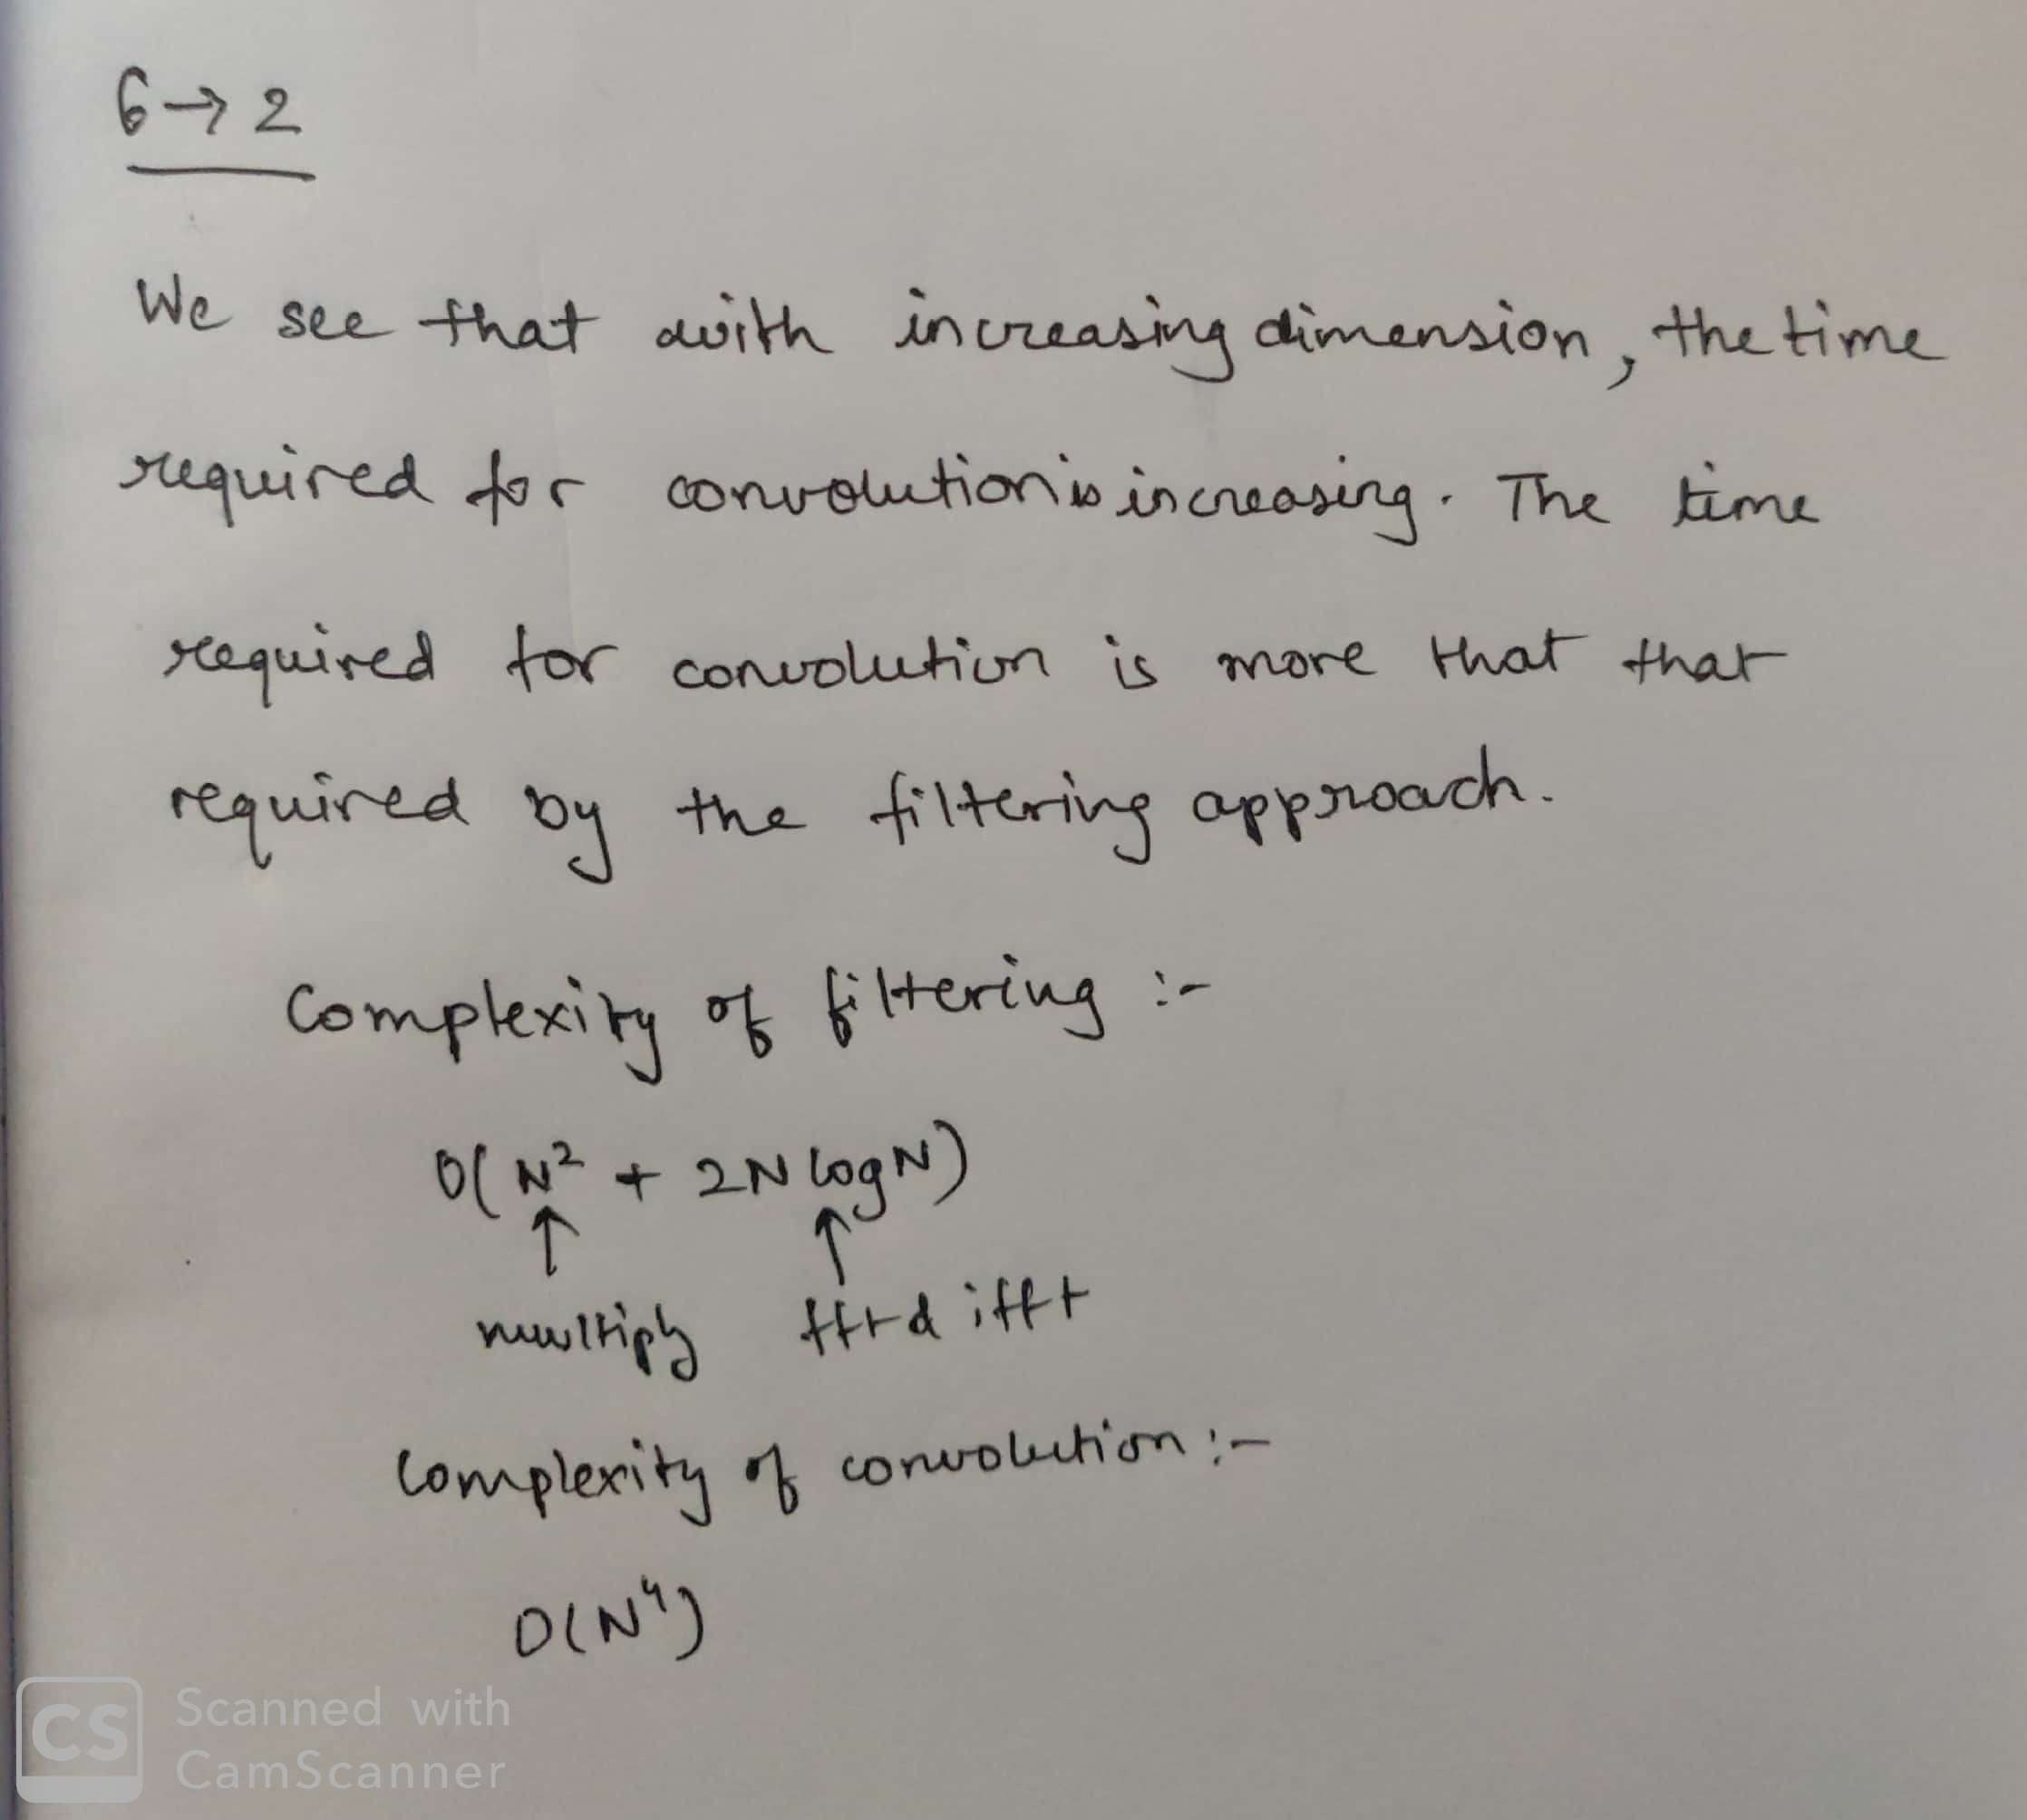 6→2
We see that with increasing dimension, the time
required for convolution is increasing. The time
required for convolution is more that that
required by the filtering approach.
Complexity of filtering :-
O(N² + 2N log N)
↑ ↑
multiply fft & ifft
Complexity of convolution :-
O(N⁴)
CS Scanned with
CamScanner